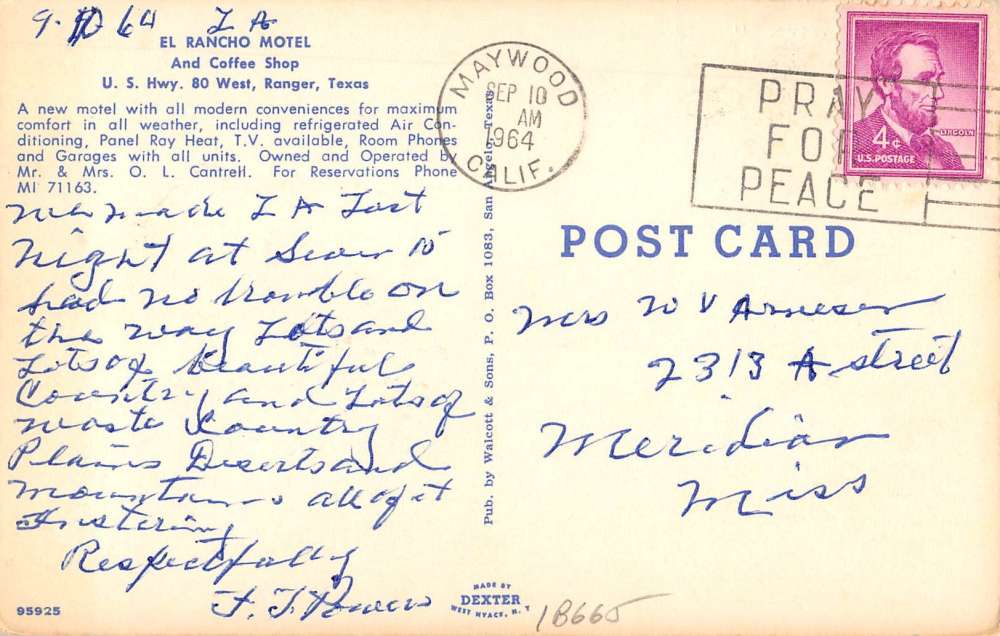 9-10 64 L A
EL RANCHO MOTEL
And Coffee Shop
U. S. Hwy. 80 West, Ranger, Texas
A new motel with all modern conveniences for maximum
comfort in all weather, including refrigerated Air Con-
ditioning, Panel Ray Heat, T.V. available, Room Phones
and Garages with all units. Owned and Operated by
Mr. & Mrs. O. L. Cantrell. For Reservations Phone
MI 71163.
made L A Last
Night at 15
had no trouble on
the way Lots and
Lots of beautiful
Country and Lots of
waste Country
Plains Deserts and
mountains all of it
Respectfully
F. J.
95925
Pub. by Walcott & Sons, P. O. Box 1083, San Angelo, Texas
MADE BY
DEXTER
WEST NYACK, N. Y.
18665
MAYWOOD
SEP 10
AM
1964
CALIF.
PRAY
FOR
PEACE
LINCOLN
4¢
U.S. POSTAGE
POST CARD
Mrs W V Arnesen
2313 A street
Meridian
Miss